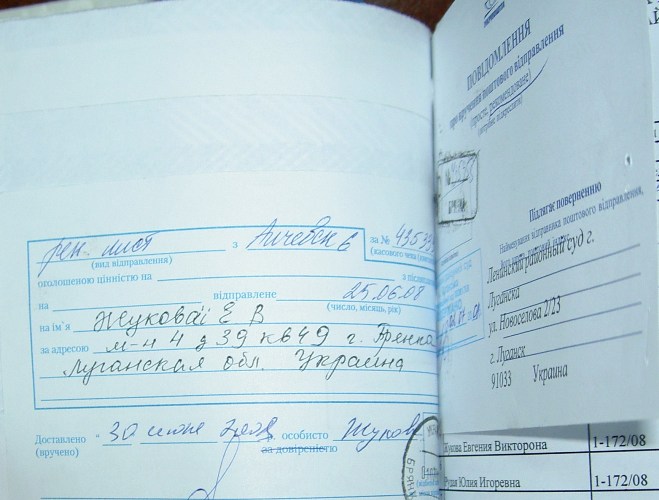 рек. лист з Алчевск 6 за № 435
(вид відправлення) (касового чека
оголошеною цінністю на з післяп
на відправлене 25.06.08
(число, місяць, рік)
на ім'я Жуковаї Е В
за адресою м-н 4 д 39 кв 49 г. Брянка
Луганская обл. Украина
Доставлено " 30 июня 2008 р. особисто Жукова
(вручено) за довіреністю
ПОВІДОМЛЕННЯ
про вручення поштового відправлення
(просте, рекомендоване)
(потрібне підкреслити)
Підлягає поверненню
Найменування відправника поштового відправлення,
Ленинский районный суд г.
Луганска
ул. Новоселова 2/23
г. Луганск
91033 Украина
Жукова Евгения Викторона 1-172/08
Рудая Юлия Игоревна 1-172/08